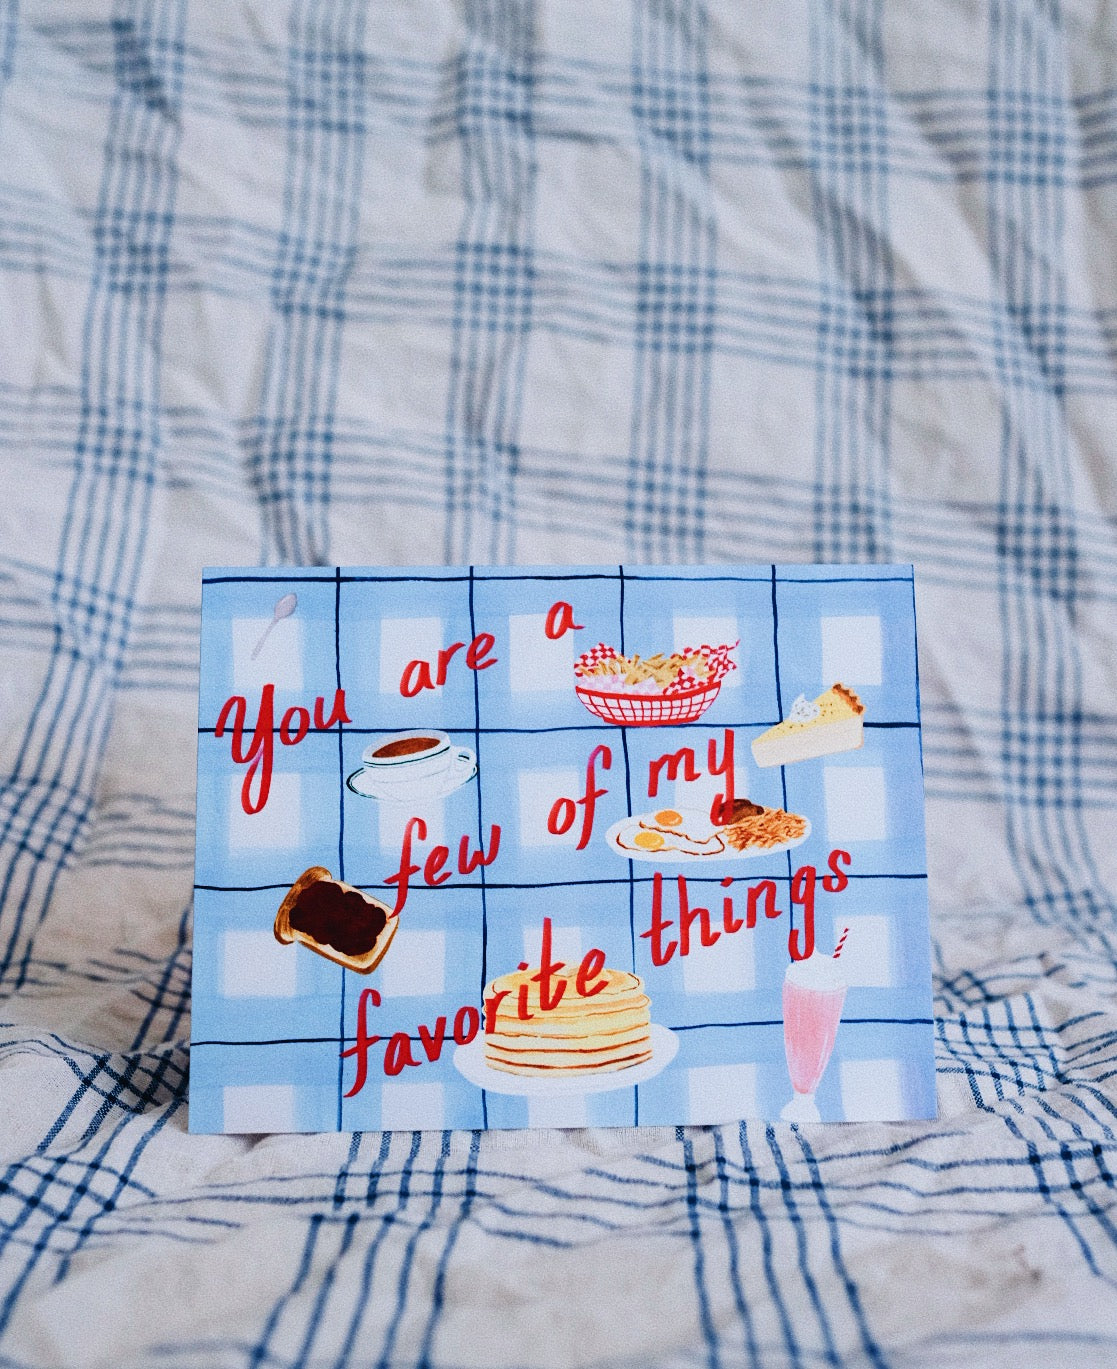 You are a
few of my
favorite things